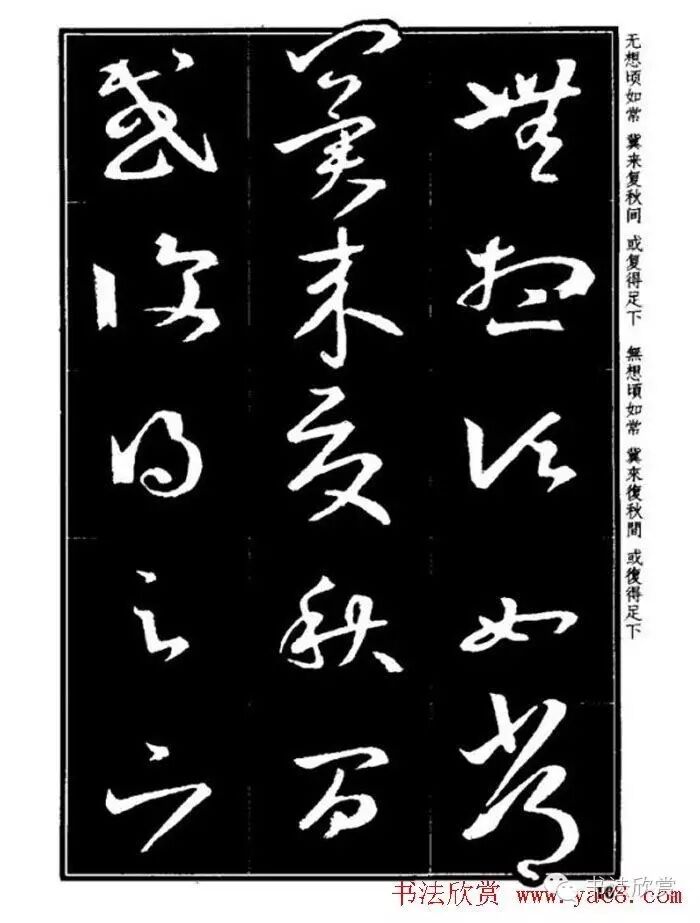 无想顷如常 冀来复秋间 或复得足下 無想頃如常 冀來復秋間 或復得足下
無想頃如常
冀來復秋間
或復得足下
书法欣赏 www.yac8.com
书法欣赏